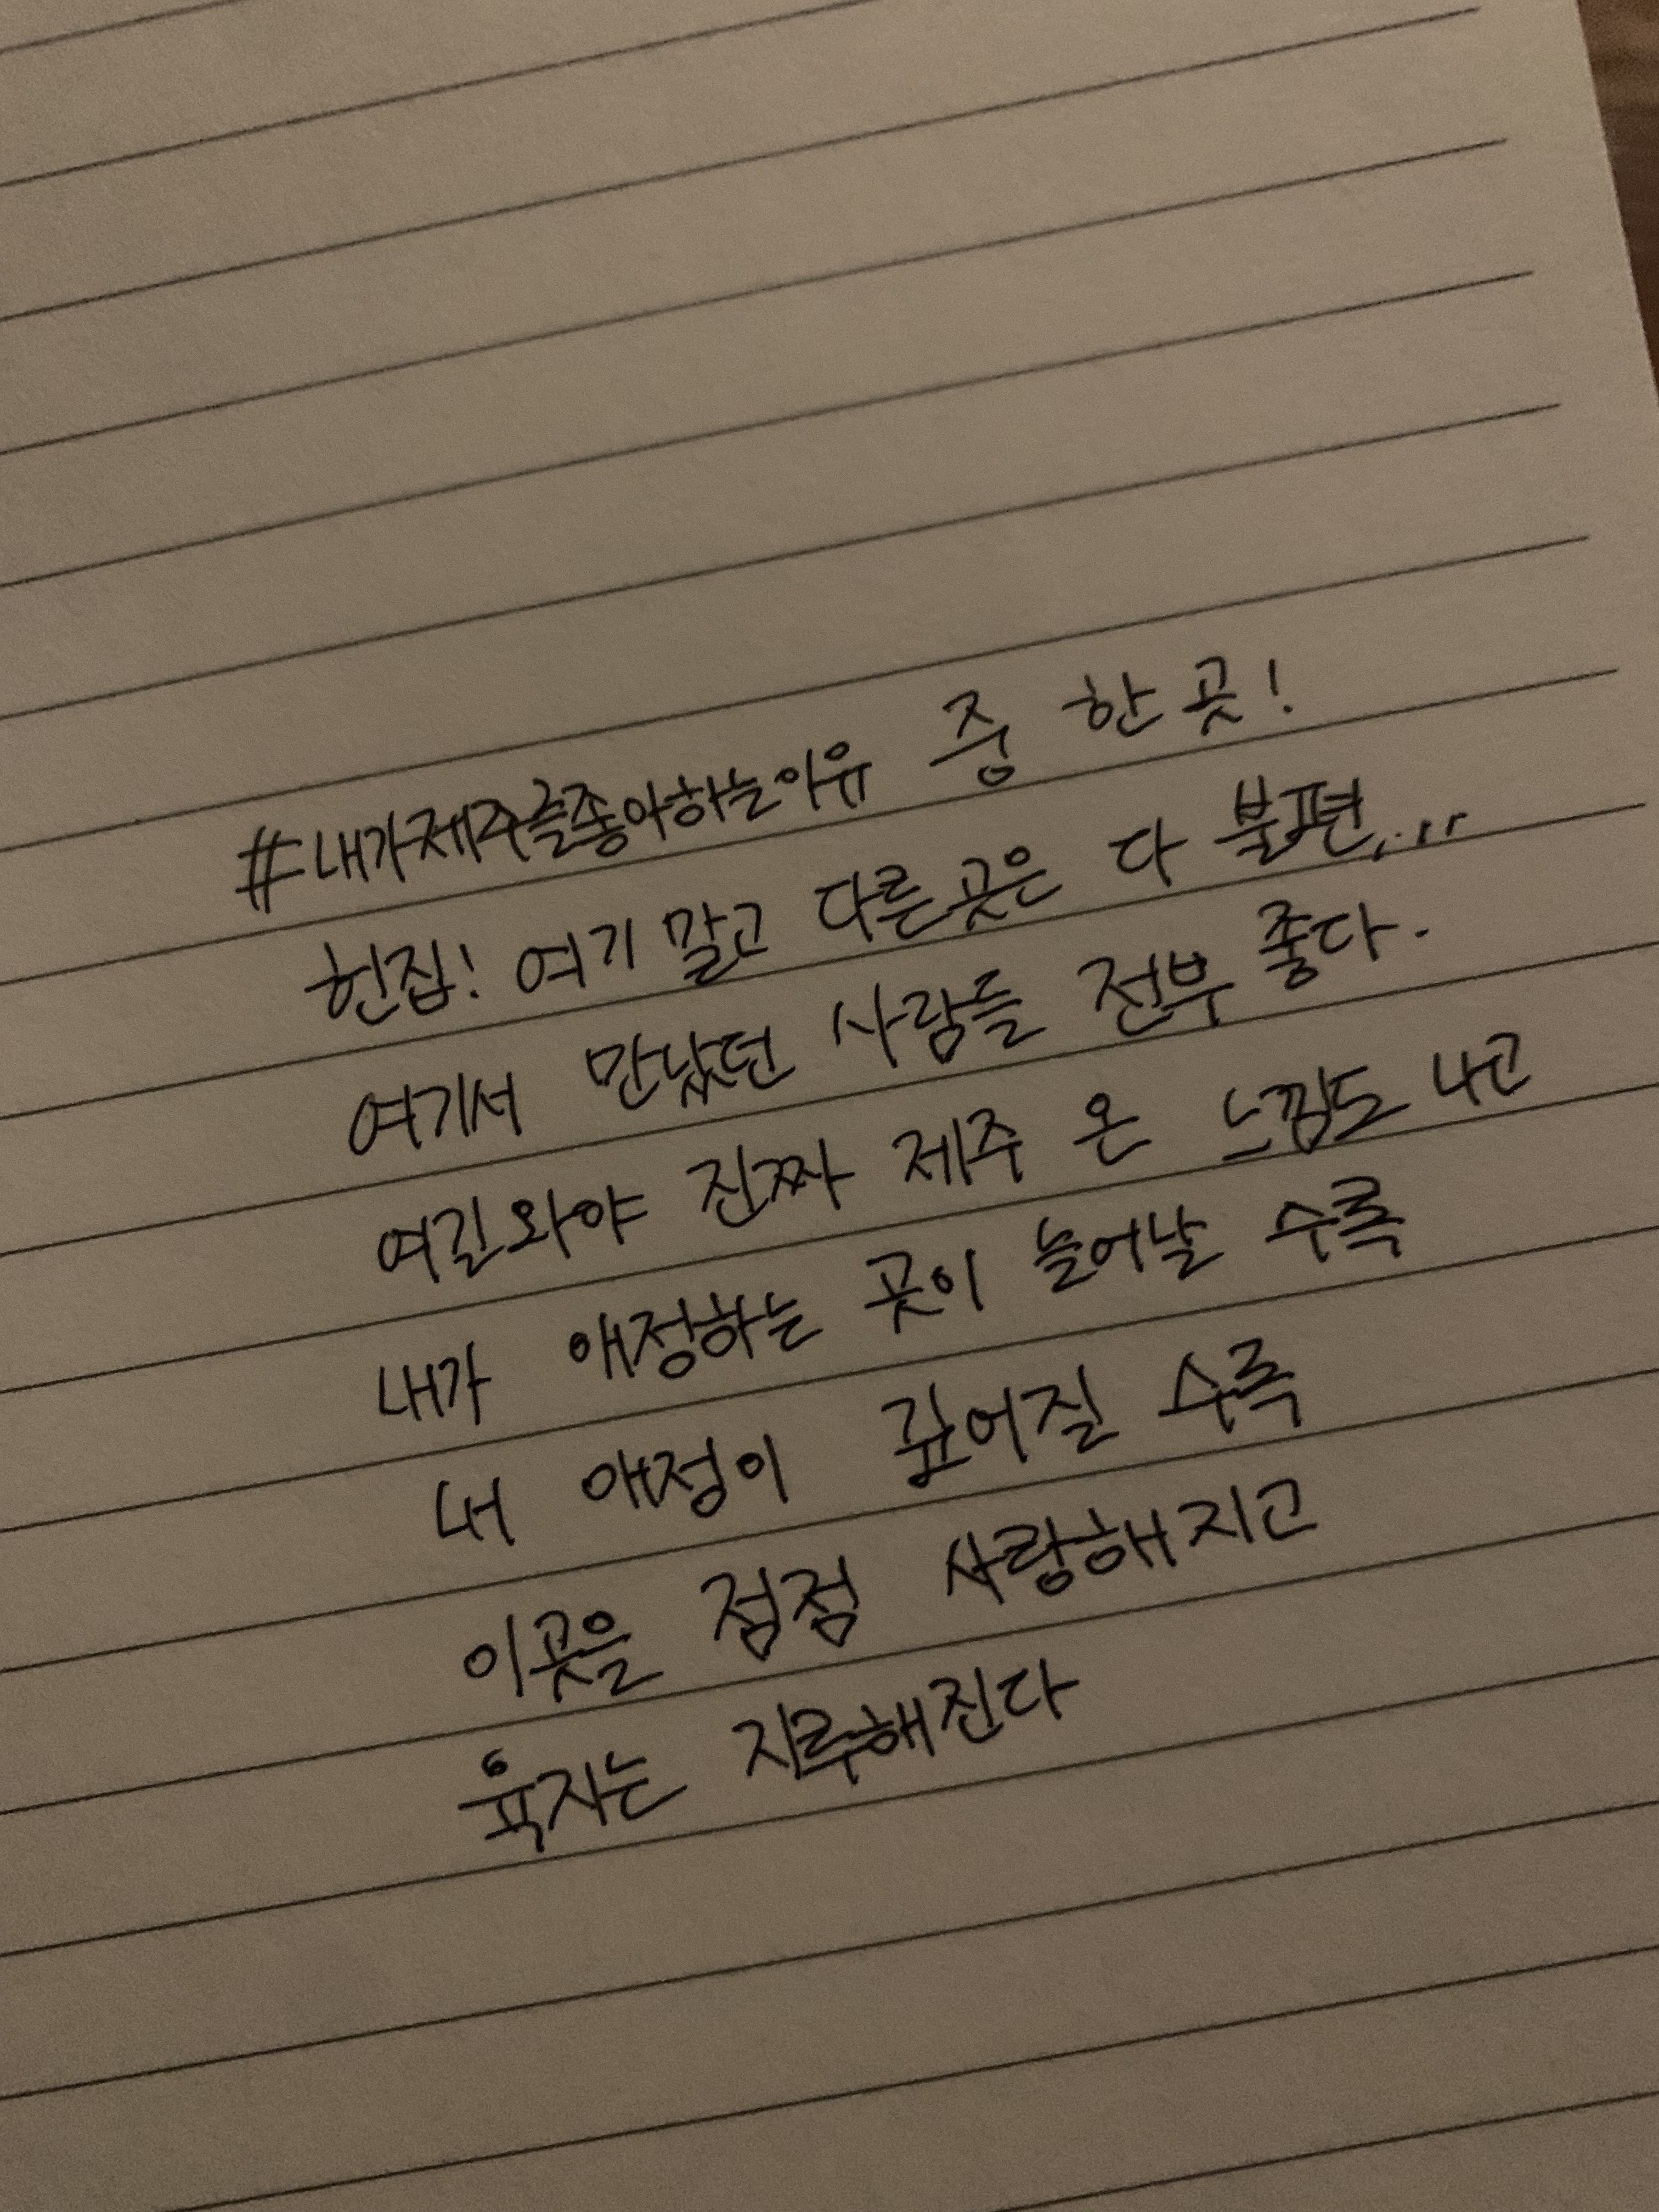 #내가제주를좋아하는이유 중 한 곳!
헌집! 여기 말고 다른곳은 다 불편...
여기서 만났던 사람들 전부 좋다.
여긴와야 진짜 제주 온 느낌도 나고
내가 애정하는 곳이 늘어날 수록
내 애정이 깊어질 수록
이곳을 점점 사랑해지고
육지는 지루해진다